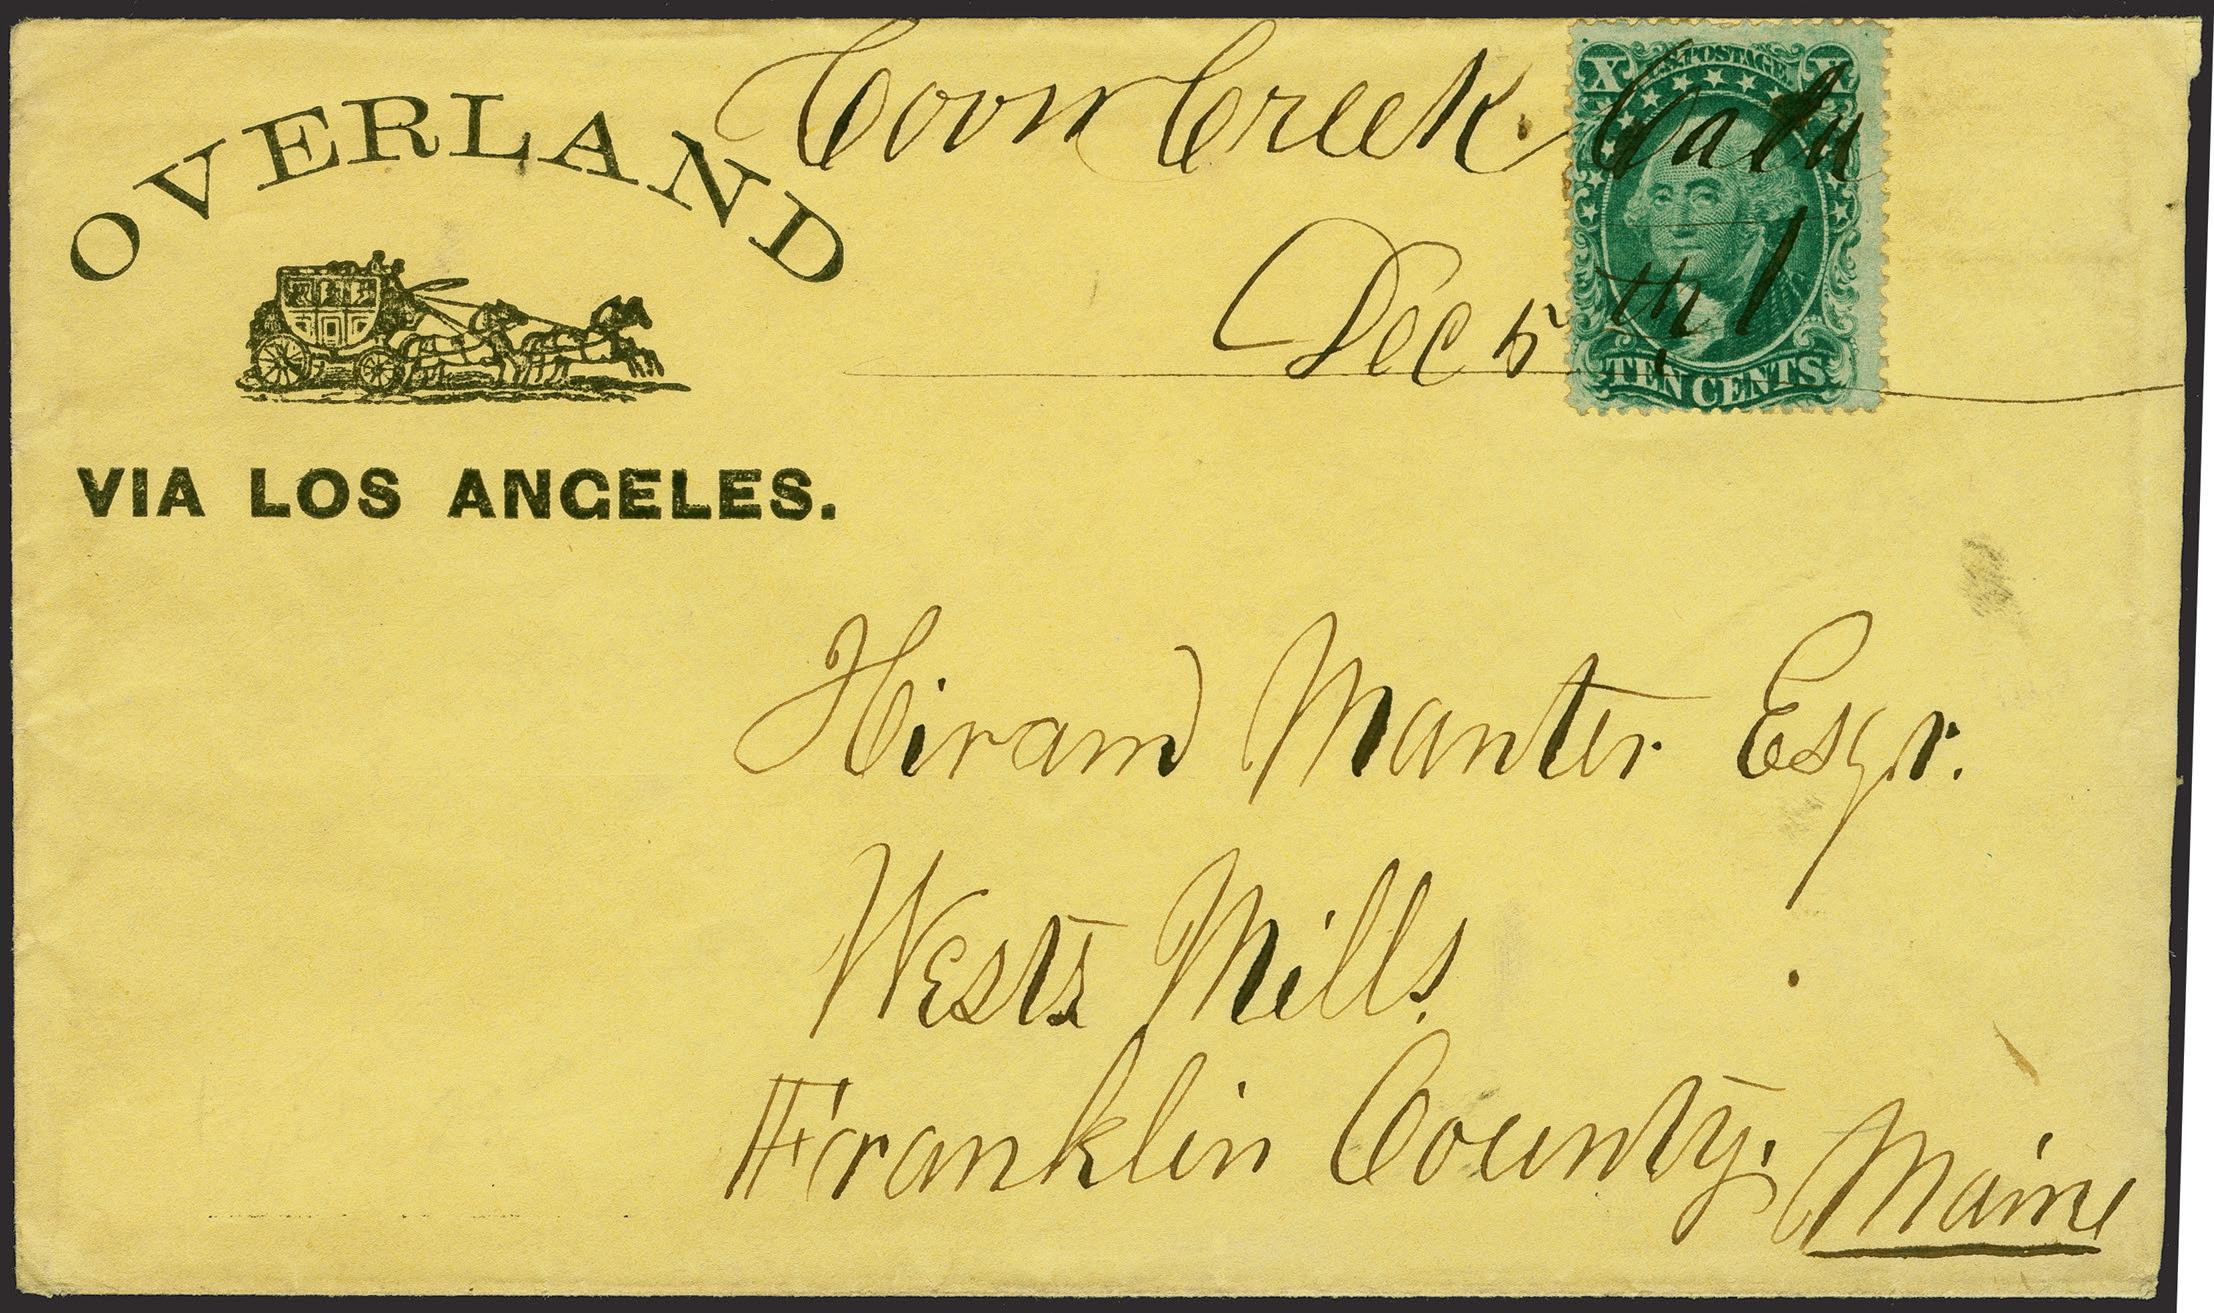 OVERLAND
VIA LOS ANGELES.
Coon Creek. Cala
Dec 5th
U.S. POSTAGE
X X
TEN CENTS
Hiram Manter Esqr.
Wests Mills.
Franklin County.
Maine